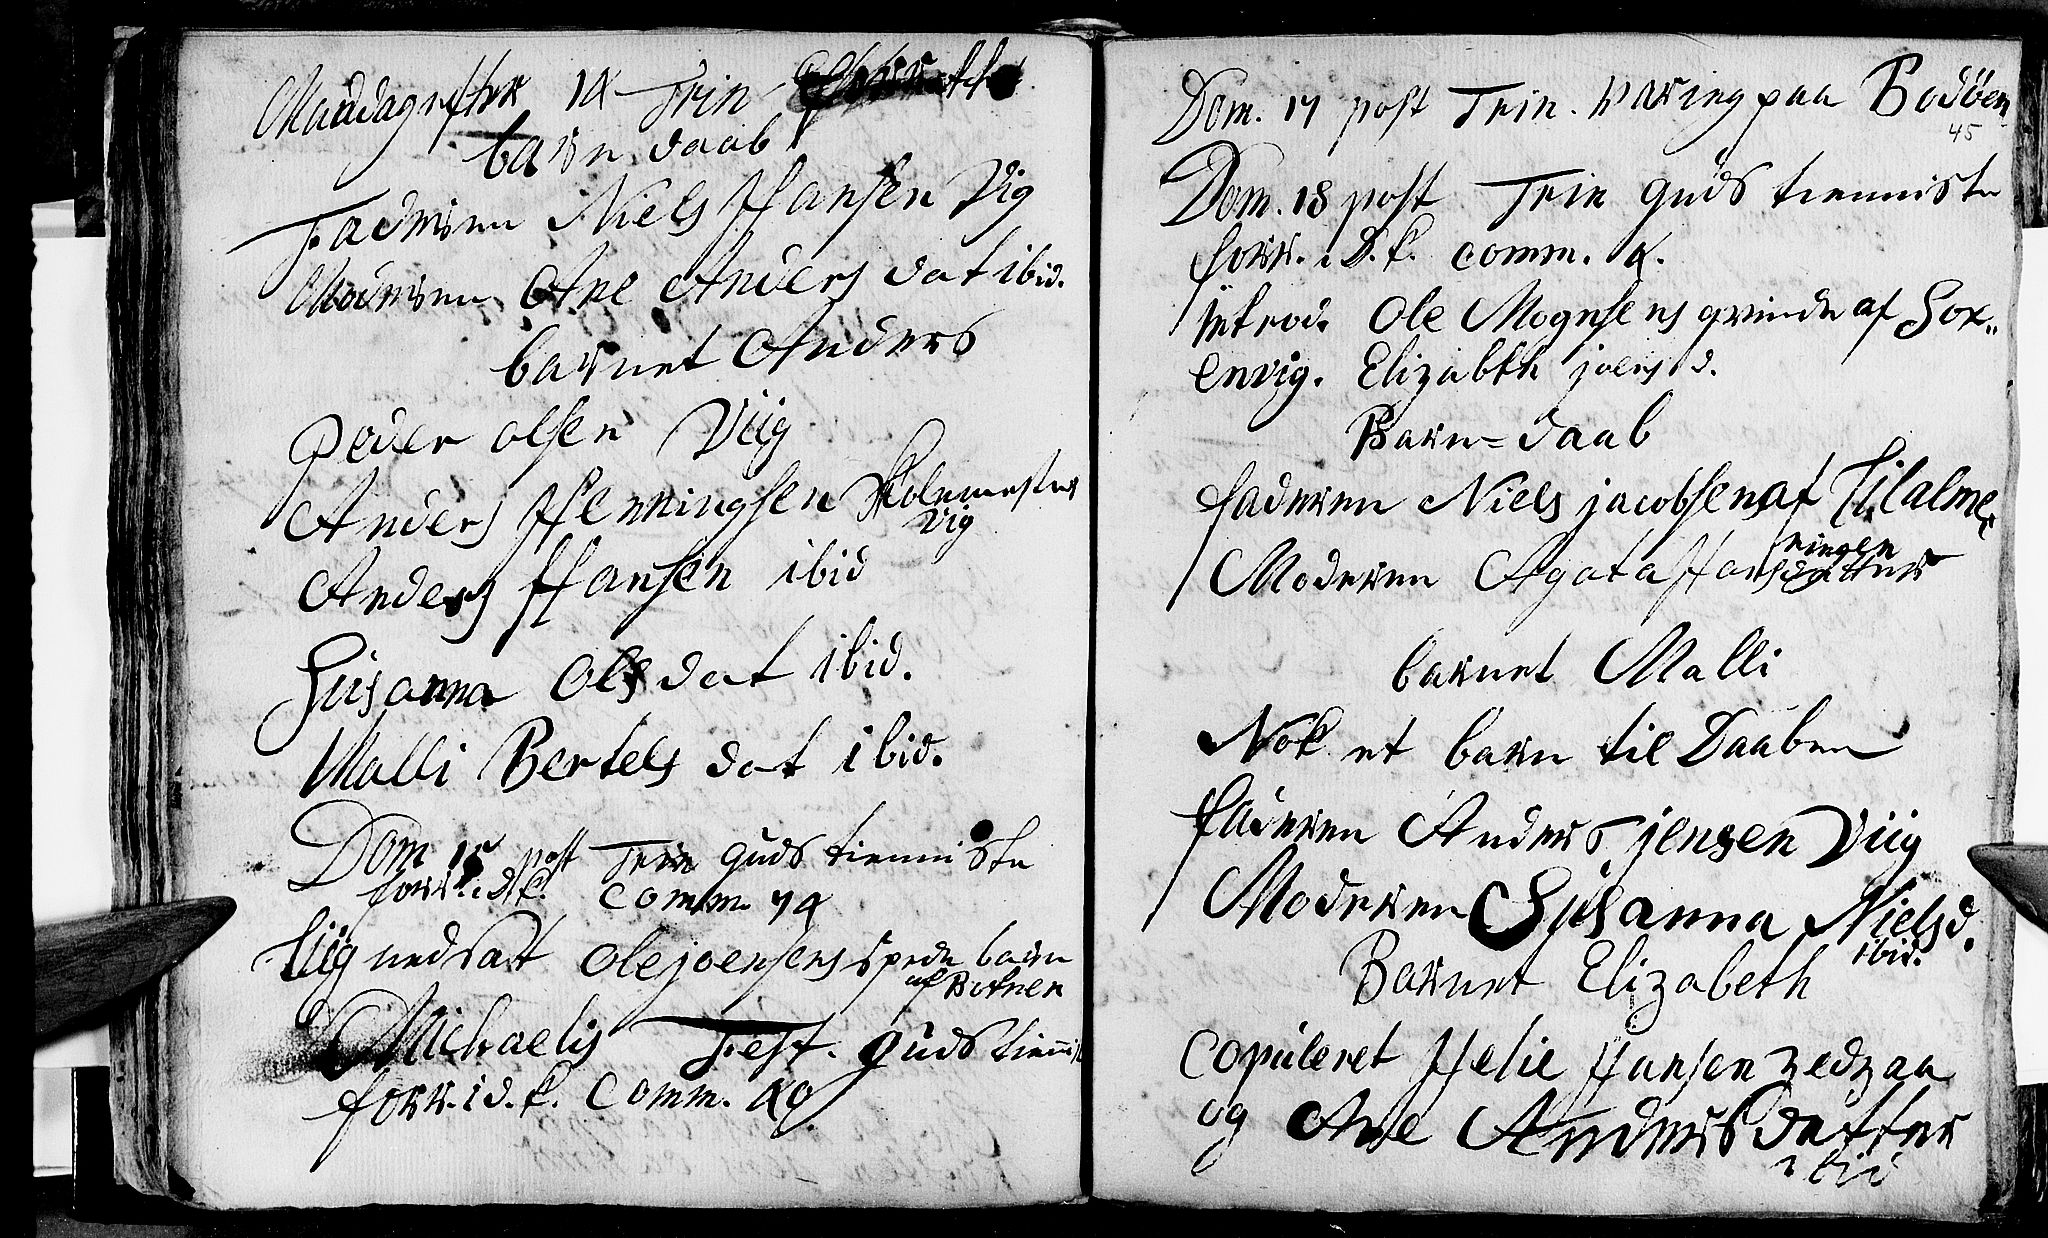 Mandag efter 14 Trin.
barn daab
Faderen Niels Hansen Vig
Moderen Ane Anders dat ibid.
barnet Anders
Peder olsen Viig
Anders Henningsen Skolemester
Vig
Anders Hansen ibid
Susanna Ols dat ibid.
Malli Bertels dat ibid.
Dom 15 post Trin guds tienniste
forr. i d. k. Comm. 74
liig nedsat Ole joensens spede barn
af Botnen
Michaelis Fest. guds tiennist
forr. i d. k. Comm.
Dom. 17 post Trin. var ieg paa Bodöen
45
Dom. 18 post Trin guds tienniste
forr. i D. k. comm. 4.
introd. Ole Mognsens qvinde af Sox„
envig. Elizabth joensd.
Barn=daab
faderen Niels jacobsen af Tilalme„
ningen
Moderen Agata Hansdatter
barnet Malli
Nok et barn til Daaben
faderen Anders jensen Viig
Moderen Susanna Nielsd.
ibid.
Barnet Elizabeth
Copuleret Helie Hansen
og Ane Andersdatter
ibid